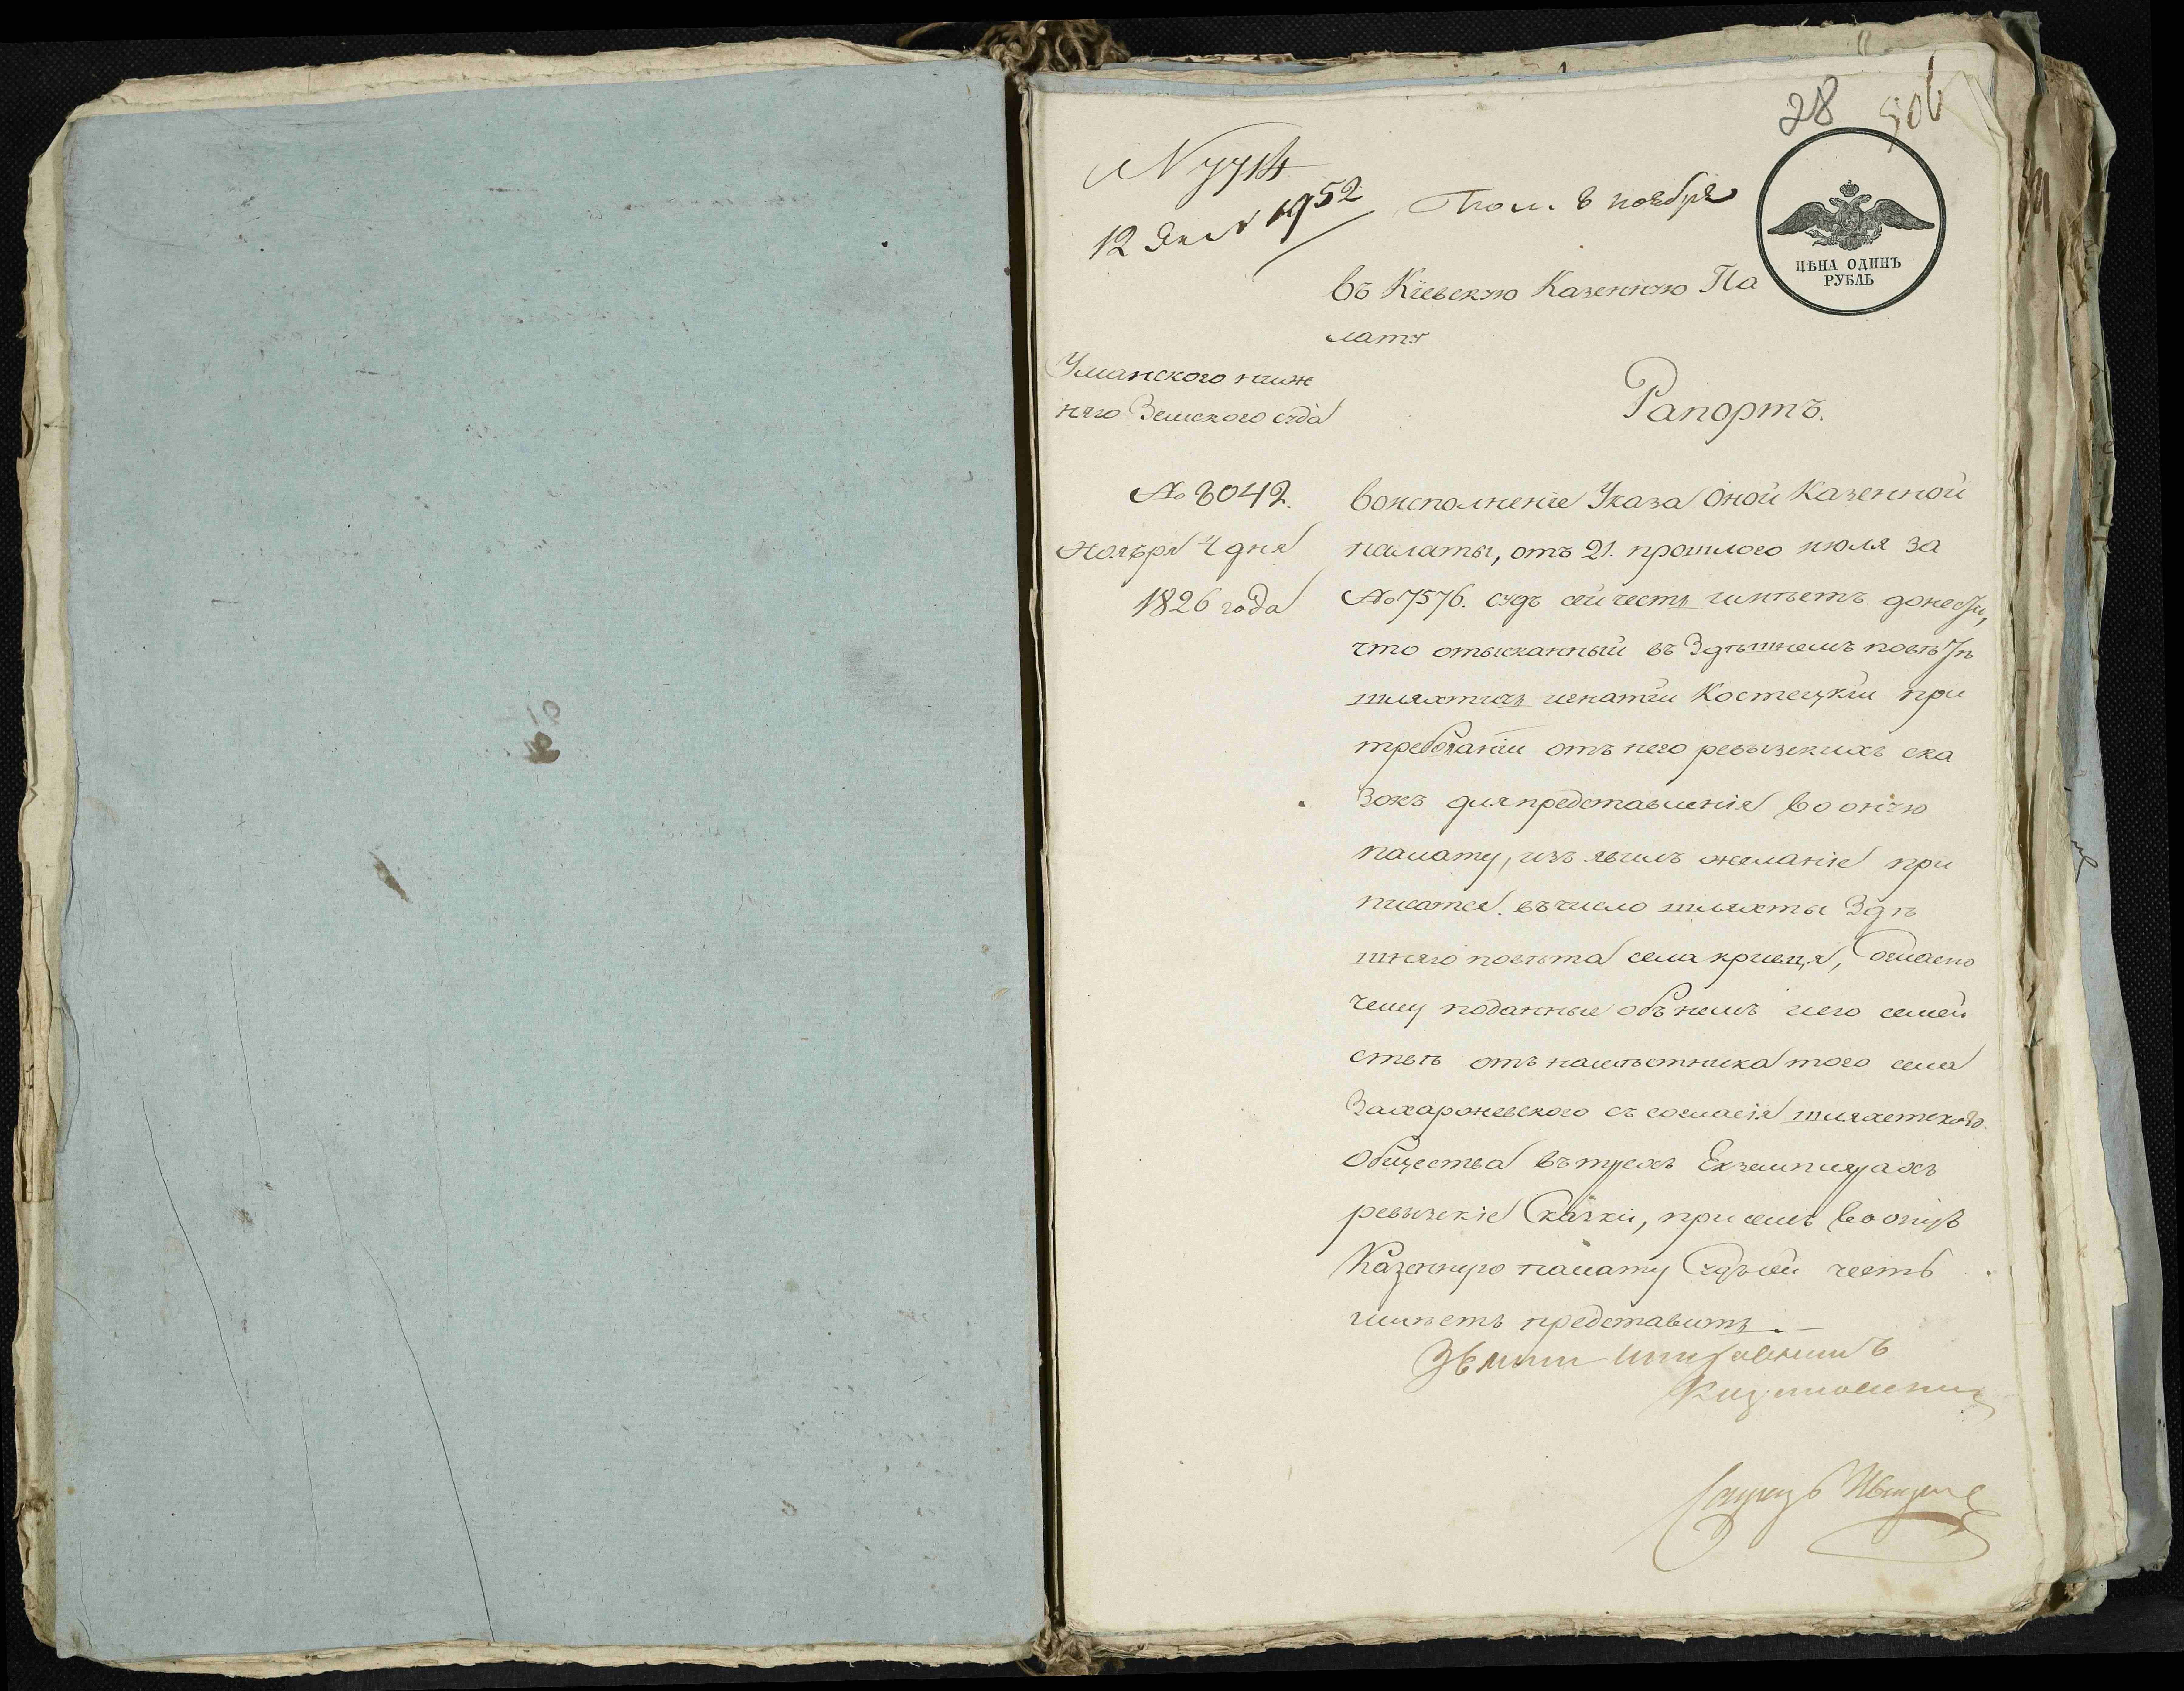 28 506
12 Янв 1952
8 ноября
ЦѢНА ОДИНЪ
РУБЛЬ
Въ Кіевскую Казенную Па
лату
Уманского ниж
няго Земского суда
Рапортъ.
№ 8042.
Ноября 4 дня
1826 года
Воисполненіе Указа оной Казенной
палаты, отъ 21. прошлого июля за
№ 7576. судъ сей честь имѣетъ донести,
что отысканный въ Здѣшнемъ повѣтѣ
шляхтичь игнатій Костецкій при
требованіи отъ него ревызскихъ ска
зокъ для представленія во оную
палату, изъявилъ желаніе при
писатся въ число шляхты Здѣ
шняго повѣта села кривця, согласно
чему поданные объ немъ и его семей
ствѣ отъ намѣстника того села
Захаржевского съ согласія шляхетского
Общества въ трехъ Екземплярахъ
ревызскіе Сказки, при семъ во оную
Казенную палату Судъ сей честь
имѣетъ представить.